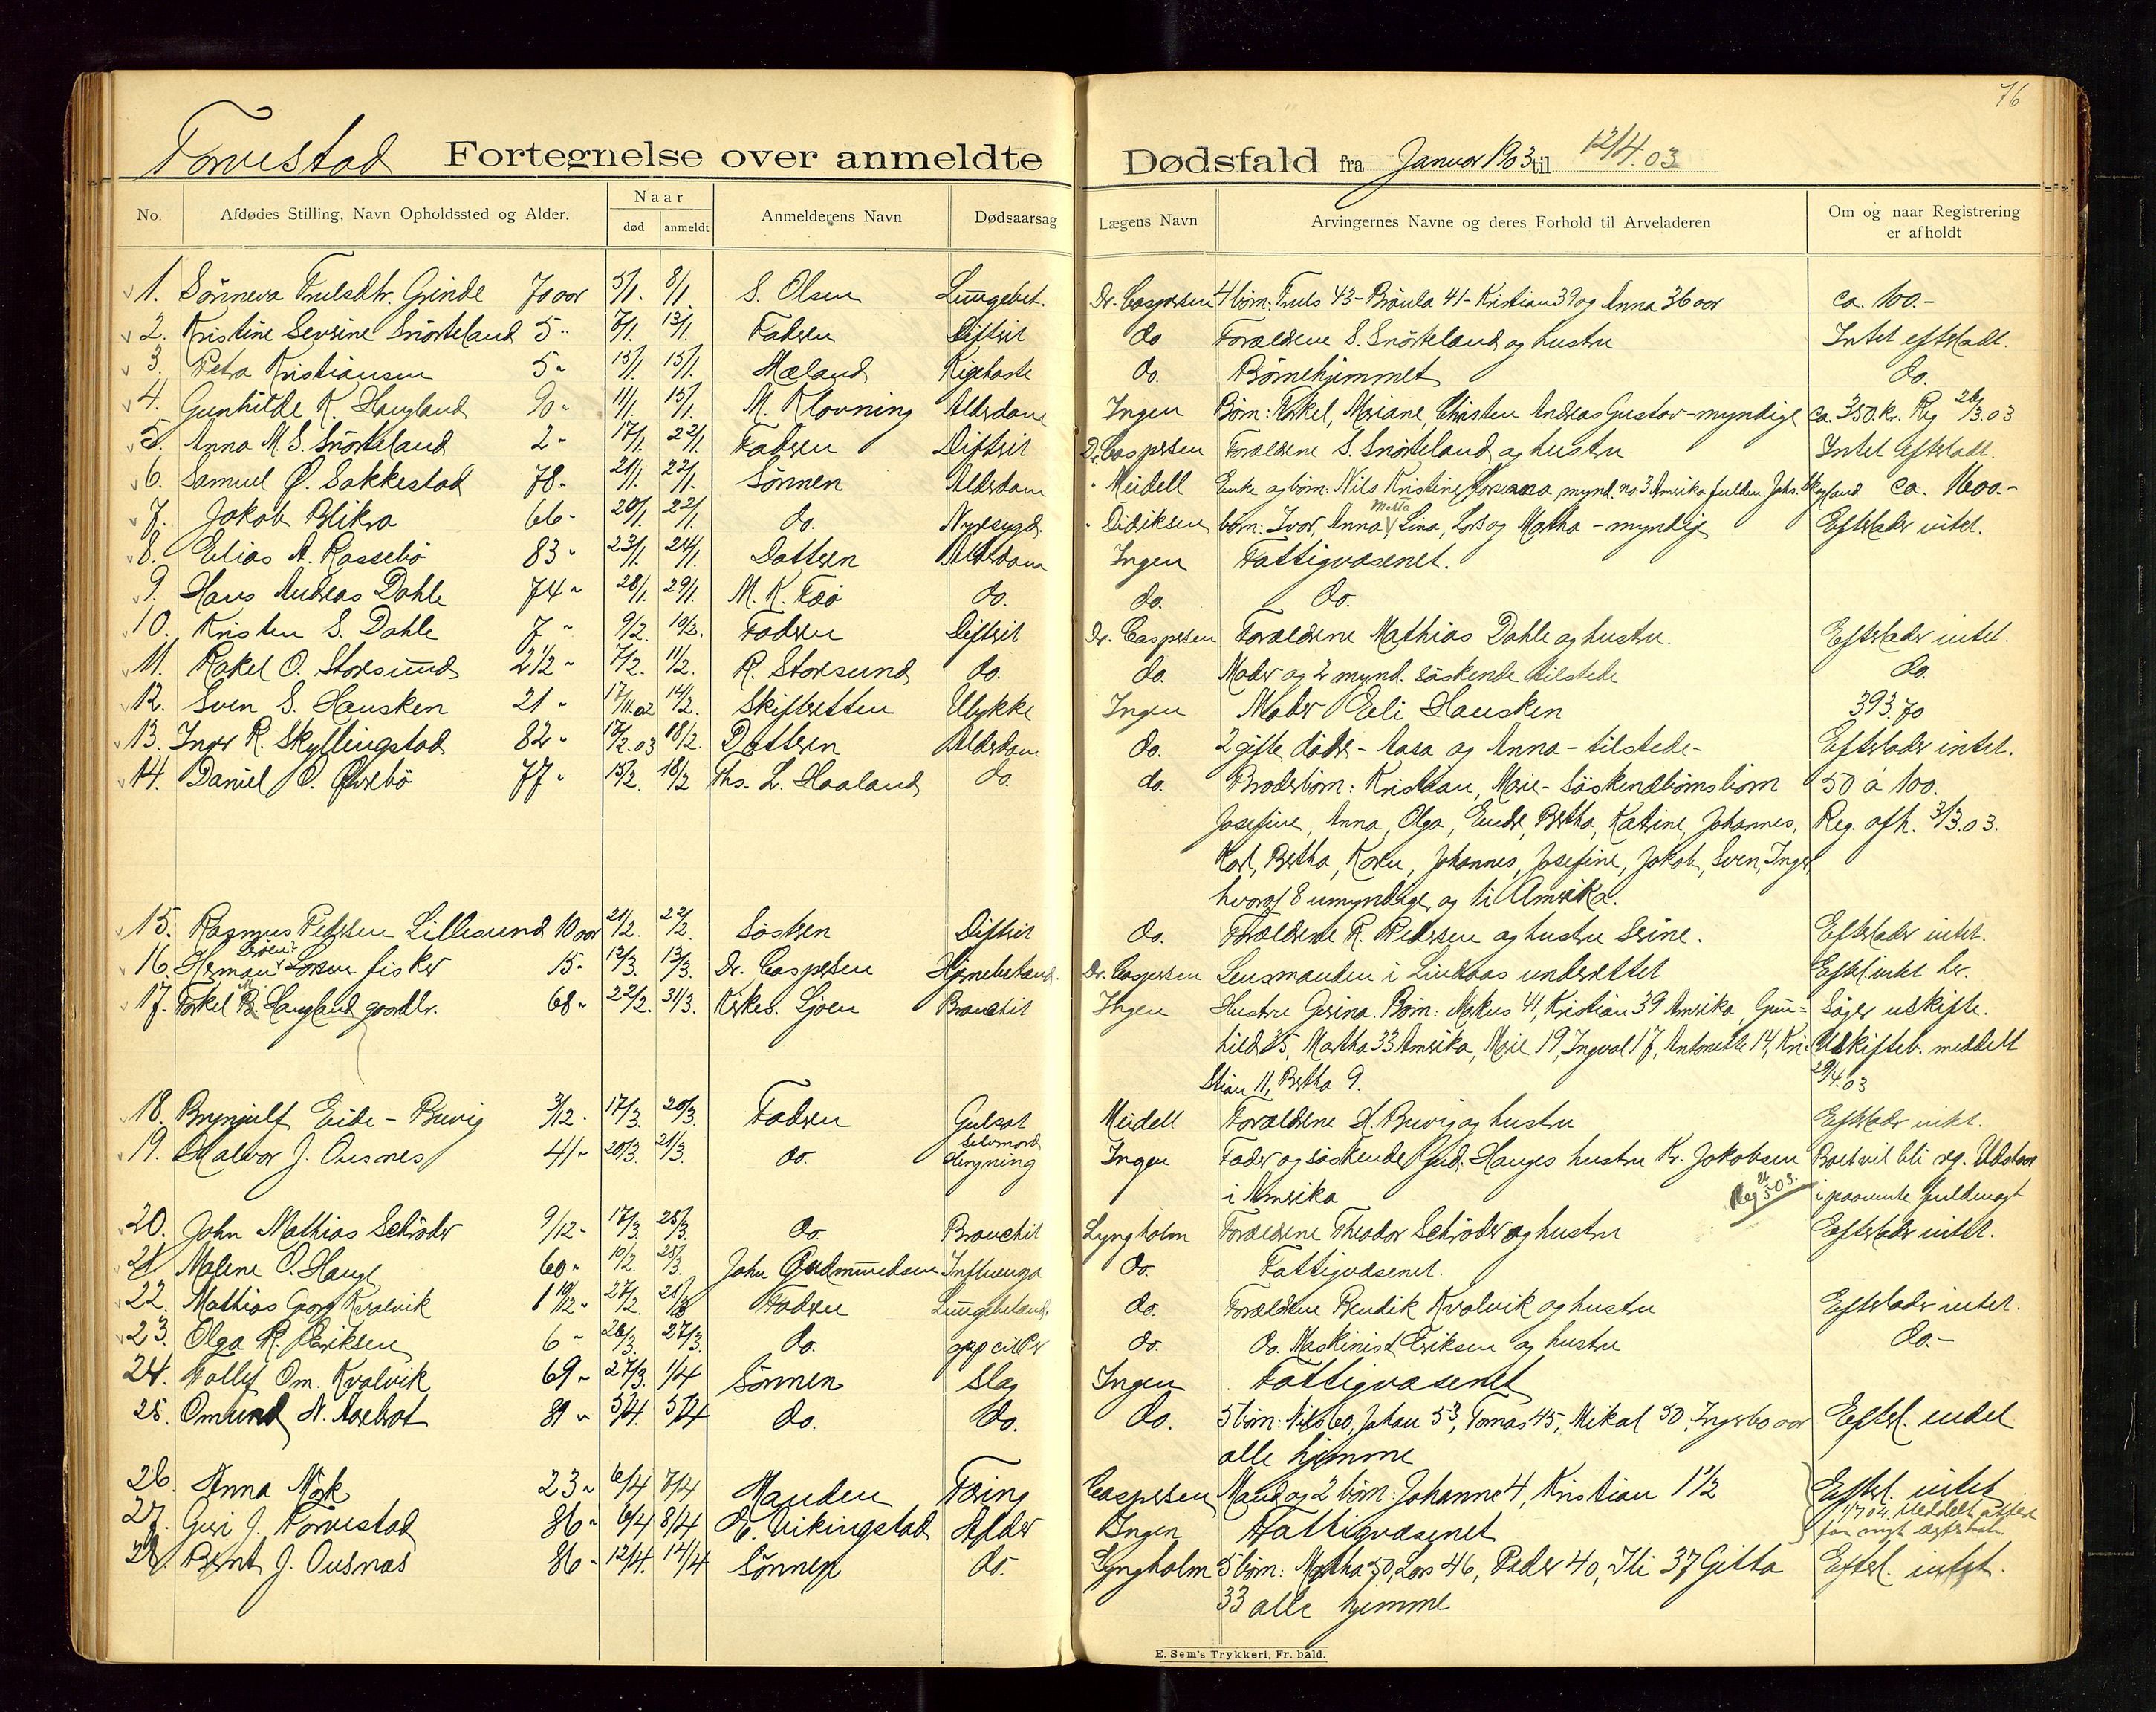 76
Torvestad Fortegnelse over anmeldte Dødsfald fra Januar 1903 til 12/4.03
No. | Afdødes Stilling, Navn Opholdssted og Alder. | Naar død | anmeldt | Anmelderens Navn | Dødsaarsag | Lægens Navn | Arvingernes Navne og deres Forhold til Arveladeren | Om og naar Registrering er afholdt
1. Sönneva Trulsdtr. Grinde 70 aar 5/1. 8/1. S. Olsen Lungebet. Dr. Caspersen 4 börn: Truls 43 - Bröula 41 - Kristian 39 og Anna 36 aar ca. 100.-
2. Kristine Sevrine Snörteland 5 " 7/1. 13/1. Faderen Diftrit do Forældrene S. Snörteland og hustru Intet efterladt.
3. Petra Kristiansen 5 " 15/1. 15/1. Mæland Kighoste do. Börnehjemmet do.
4. Gunhilde K. Haugland 90 " 11/1. 15/1. M. Klovning Alderdom Ingen Börn: Torkel, Mariane, Christen Andreas Gustav - myndige ca. 350. kr. Reg 26/3.03
5. Anna M. S. Snörteland 2 " 17/1. 22/1. Faderen Diftrit Dr. Caspersen Forældrene S. Snörteland og hustru Intet efterladt.
6. Samuel Ø. Sakkestad 78 " 21/1. 22/1. Sönnen Alderdom " Meidell Enke og börn: Nils Kristine mynd. no. 3 Amerika fuldm. Johs. ca. 1600.-
7. Jakob Blikra 66 " 20/1. 22/1. do. Nyresygd. " Didriksen börn: Ivar, Anna, Malla Lina, Lars og Martha - myndige Efterlader intet.
8. Elias A. Rossebö 83 " 23/1. 24/1. Datteren Alderdom Ingen Fattigvæsenet.
9. Hans Andreas Dahle 74 " 28/1. 29/1. M. K. Feö do. do. do.
10. Kristen S. Dahle 7 " 9/2. 10/2. Faderen Diftrit Dr. Caspersen Forældrene Mathias Dahle og hustru. Efterlader intet.
11. Rakel O. Storesund 21/2 " 7/2. 11/2. R. Storesund do. do. Moder og 2 mynd. söskende tilstede do.
12. Sven S. Hausken 21 " 17/11.02 14/2. Skifteretten Ulykke Ingen Moder Eli Hausken 393.70
13. Inger R. Skyllingstad 82 " 13/2.03 18/2. Datteren Alderdom do. 2 gifte dötre - Aasa og Anna - tilstede - Efterlader intet.
14. Daniel O. Övrebö 77 " 15/2. 18/2 Ths. L. Haaland do. do. Broderbörn: Kristian, Marie - Söskendbörnsbörn 50 à 100.
Josefine, Anna, Olga, Endre, Bertha, Katrine, Johannes, Reg. afh. 3/3.03.
Karl, Bertha, Karen, Johannes, Josefine, Jakob, Sven, Inger,
hvoraf 8 umyndige, og ti Amerika.
15. Rasmus Petersen Lillesund 10 aar 21/2. 22/2. Söstren Diftrit do. Forældrene R. Petersen og hustru Serine. Efterlader intet.
16. Herman Larsen fisker 15 " 13/3. 13/3. Dr. Caspersen Hjernebetænd. Dr. Caspersen Lensmanden i Lindaas underrettet Efterl intet her.
17. Torkel B. Haugland gaardbr. 68 " 22/2. 31/3. Kirkes. Sjöen Bronchit Ingen Hustru Gurina. Börn: Markus 41, Kristian 39 Amerika, Gun- Söger uskifte.
hild 35, Martha 33 Amerika, Marie 19, Ingval 17, Antonette 14, Kri- Uskifteb. meddelt
stian 11, Bertha 9. 29/4.03
18. Brynjulf Eide - Buvig 3/12 " 17/3. 20/3. Faderen Gulsot Meidell Forældrene H. Buvig og hustru Efterlader intet.
19. Halvor J. Ousnes 41 " 20/3. 21/3. do. Selvmord Hængning Ingen Fader og söskende Gud. Hauges hustru Kr. Jokobsen Boet vil bli reg.
i Amerika Reg 5.03. i paavente fuldmagt
20. John Mathias Schröder 9/12 " 17/3. 25/3. do. Bronchit Lyngholm Forældrene Theodor Schröder og hustru Efterlader intet.
21 Malene O. Hauge 60 " 10/2. 25/3. John Gudmundsen Influenza do. Fattigvæsenet.
22. Mathias Georg Kvalvik 1 10/12 " 27/2. 25/3 Faderen Lungebetænd. do. Forældrene Bendik Kvalvik og hustru Efterlader intet.
23. Olga R. Eriksen 6 " 26/3. 27/3. do. do. do. Maskinist Eriksen og hustru do.-
24. Tollef Om. Kvalvik 69 " 27/3. 1/4 Sönnen Slag Ingen Fattigvæsenet
25. Omund N. 81 " 3/4. 5/4 do. do. do. 5 börn: Nils 60, Johan 53, Tomas 45, Mikal 50, Inger 60 aar Efterl. intet
alle hjemme
26. Anna Mörk 23 " 6/4 7/4 Manden Tæring Caspersen Mand og 2 börn: Johanne 4, Kristian 1 1/2 Efterl. intet
27. Guri J. Torvestad 86 " 6/4 8/4 E. Vikingstad Alder Ingen Fattigvæsenet 1/7 04. Meddelt attest for nyt ægteskab.
28. Bernt J. Ousnes 86 " 12/4. 14/4 Sönnen do. Lyngholm 5 börn: Martha 50, Lars 46, Peder 40, Ili 37 Gitta Efterl. intet.
33 alle hjemme
E. Sem's Trykkeri, Fr. hald.